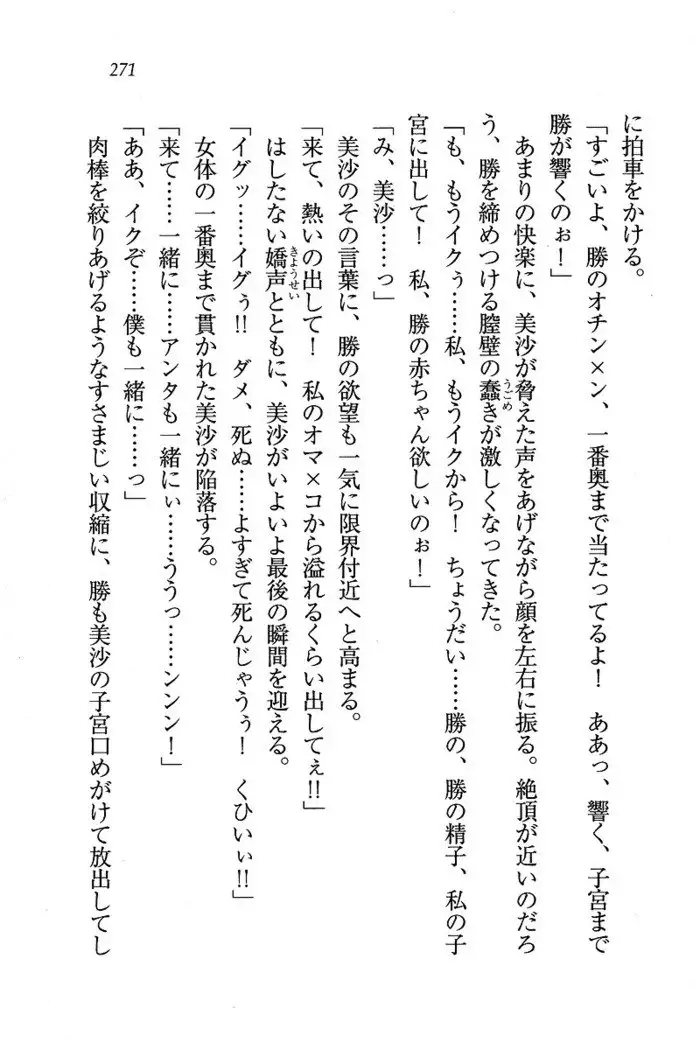 271
に拍車をかける。
「すごいよ、勝のオチン×ン、一番奥まで当たってるよ！　ああっ、響く、子宮まで
勝が響くのぉ！」
あまりの快楽に、美沙が脅えた声をあげながら顔を左右に振る。絶頂が近いのだろ
う、勝を締めつける膣壁の蠢きが激しくなってきた。
「も、もうイクぅ……私、もうイクから！　ちょうだい……勝の、勝の精子、私の子
宮に出して！　私、勝の赤ちゃん欲しいのぉ！」
「み、美沙……っ」
美沙のその言葉に、勝の欲望も一気に限界付近へと高まる。
「来て、熱いの出して！　私のオマ×コから溢れるくらい出してぇ!!」
はしたない嬌声とともに、美沙がいよいよ最後の瞬間を迎える。
「イグッ……イグぅ!!　ダメ、死ぬ……よすぎて死んじゃうぅ！　くひいぃ!!」
女体の一番奥まで貫かれた美沙が陥落する。
「来て……一緒に……アンタも一緒にぃ……ううっ……ンンン！」
「ああ、イクぞ……僕も一緒に……っ」
肉棒を絞りあげるようなすさまじい収縮に、勝も美沙の子宮口めがけて放出してし